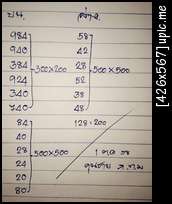 บน.
ล่าง.
984
940
384
924
340
740
300×200
58
42
28
52
38
48
500×500
84
40
28
24
20
80
500×500
128×200
[426x567] upic.me